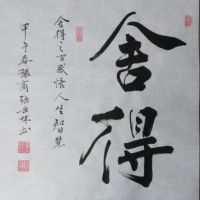 舍得
舍得之字感悟人生智慧
甲午春豫商張岳林書